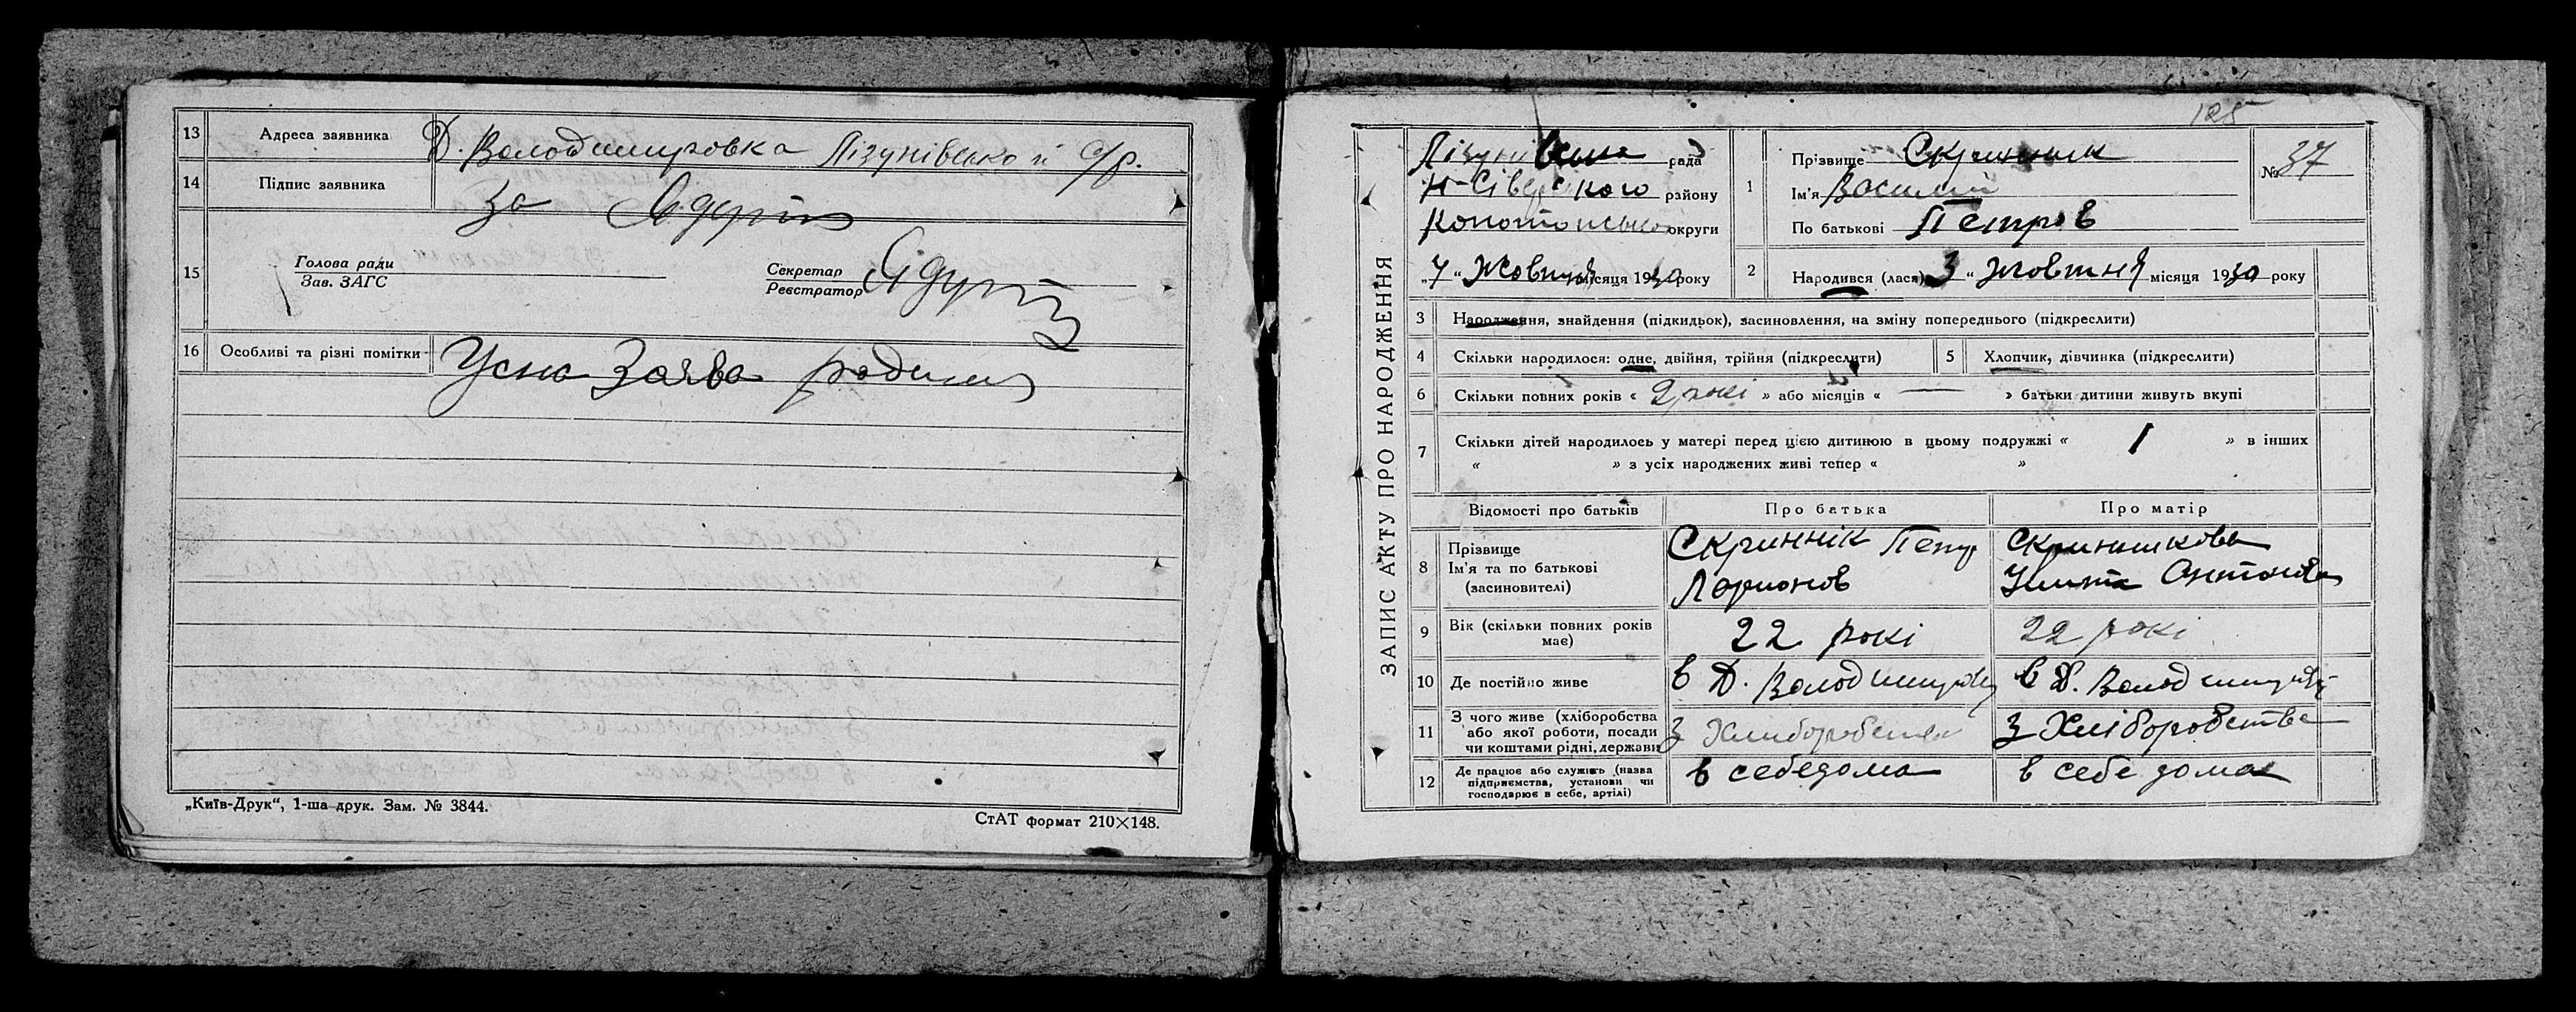 13 Адреса заявника Д. Володимировка Лізунівської с/р.
14 Підпис заявника За
15 Голова ради
Зав. ЗАГС
Секретар
Реєстратор
16 Особливі та різні помітки Усна Заява родины
„Київ-Друк“, 1-ша друк. Зам. № 3844.
СтАТ формат 210×148.
185
ЗАПИС АКТУ ПРО НАРОДЖЕННЯ
Лізунівська рада
Н-Сіверського району
Конотопської округи
„4“ Жовтня місяця 1930 року
1 Прізвище Скринник
Ім'я Василий
По батькові Петров
№ 37
2 Народився (лася) 3 “ Жовтня місяця 1930 року
3 Народження, знайдення (підкидьок), засиновлення, на зміну попереднього (підкреслити)
4 Скільки народилося: одне, двійня, трійня (підкреслити) 5 Хлопчик, дівчинка (підкреслити)
6 Скільки повних років « 2 рокі » або місяців « — » батьки дитини живуть вкупі
7 Скільки дітей народилось у матері перед цією дитиною в цьому подружжі « 1 » в інших
« » з усіх народжених живі тепер « »
Відомості про батьків Про батька Про матір
8 Прізвище
Ім'я та по батькові
(засиновителі)
Скриннік Петр
Ларионов
Скринникова
Антонова
9 Вік (скільки повних років
має) 22 рокі 22 рокі
10 Де постійно живе в Д. Володимировц в Д. Володимировц
11 З чого живе (хліборобства
або якої роботи, посади
чи коштами рідні, держави) З Хлиборобства З Хліборобства
12 Де працює або служить (назва
підприємства, установи чи
господарює в себе, артілі) в себедома в себе дома